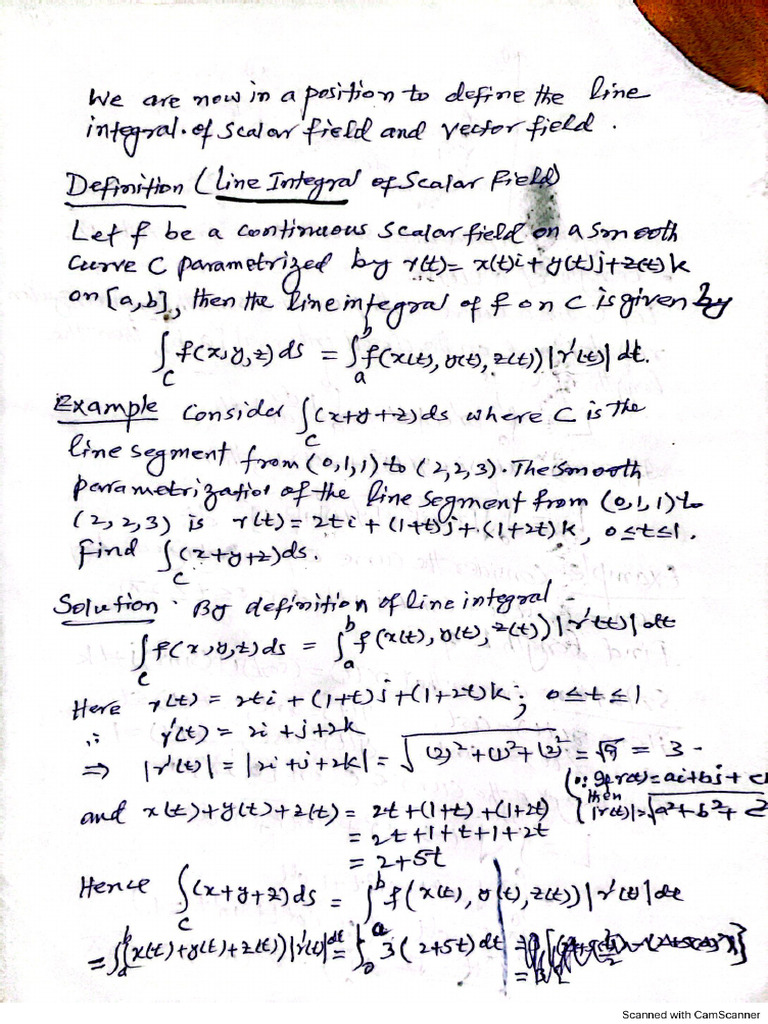 We are now in a position to define the line
integral of scalar field and vector field.
Definition (Line Integral of Scalar Field)
Let f be a continuous scalar field on a smooth
curve C parametrized by r(t)= x(t)i+y(t)j+z(t)k
on [a,b], then the line integral of f on C is given by
∫_C f(x,y,z)ds = ∫_a^b f(x(t), y(t), z(t))|r'(t)|dt.
Example Consider ∫_C (x+y+z)ds where C is the
line segment from (0,1,1) to (2,2,3). The smooth
parametrization of the line segment from (0,1,1) to
(2,2,3) is r(t)= 2ti + (1+t)j + (1+2t)k, 0≤t≤1.
Find ∫_C (x+y+z)ds.
Solution. By definition of line integral -
∫_C f(x,y,z)ds = ∫_a^b f(x(t), y(t), z(t))|r'(t)|dt
Here r(t) = 2ti + (1+t)j + (1+2t)k; 0≤t≤1
∴ r'(t) = 2i+j+2k
⇒ |r'(t)| = |2i+j+2k| = √((2)²+(1)²+(2)²) = √9 = 3 -
(∵ If r(t)=ai+bj+c
then
|r(t)|=√a²+b²+c²
and x(t)+y(t)+z(t) = 2t+(1+t)+(1+2t)
= 2t+1+t+1+2t
= 2+5t
Hence ∫_C (x+y+z)ds = ∫_a^b f(x(t), y(t), z(t))|r'(t)|dt
= ∫_a^b (x(t)+y(t)+z(t))|r'(t)|dt = ∫_0^1 3(2+5t)dt
Scanned with CamScanner